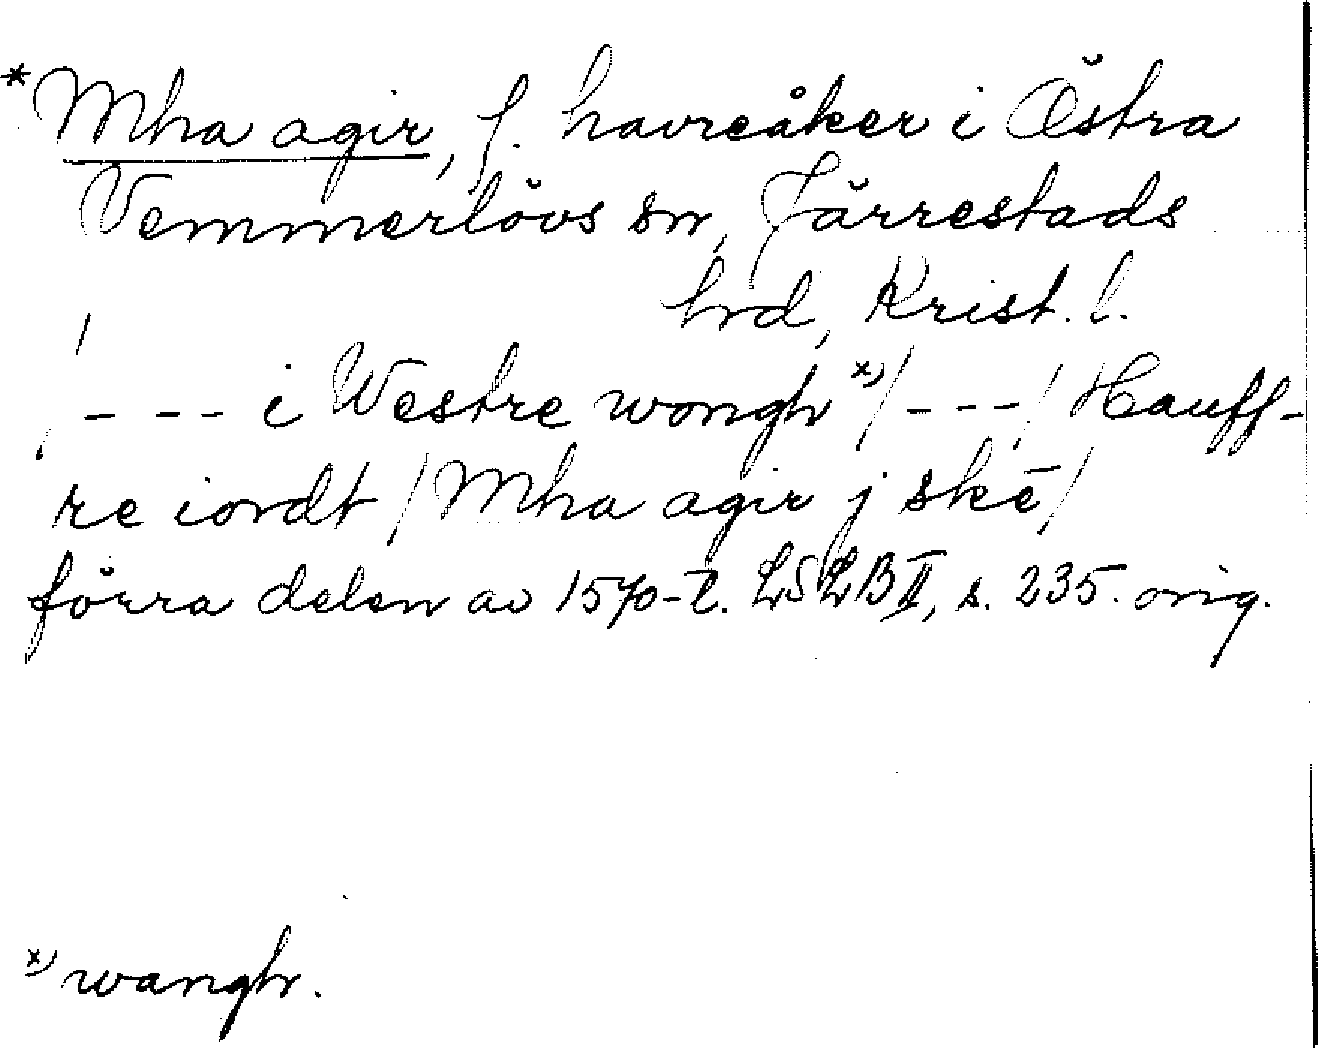 * Mha agir, f. havreåker i Östra
Vemmerlövs sn, Järrestads
hrd, Krist. l.
/ - - - i Westre wongh x) / - - - / Hauff-
re iordt / Mha agir j skē /
förra delen av 1570-t. LSLB II, s. 235. orig.
x) wangh.